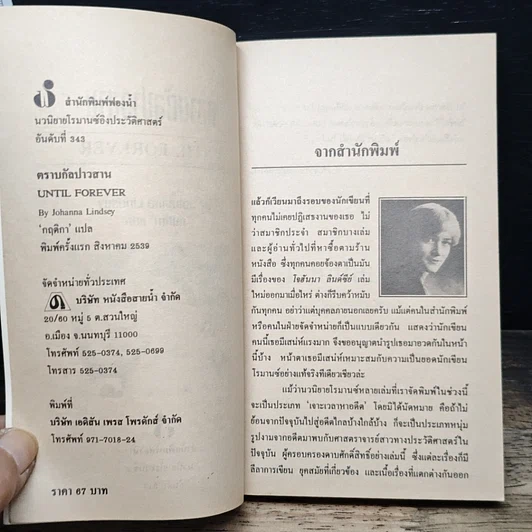 สำนักพิมพ์ฟองน้ำ
นวนิยายโรมานซ์อิงประวัติศาสตร์
อันดับที่ 343
ตราบกัลปาวสาน
UNTIL FOREVER
By Johanna Lindsey
'กฤติกา' แปล
พิมพ์ครั้งแรก สิงหาคม 2539
จัดจำหน่ายทั่วประเทศ
บริษัท หนังสือสายน้ำ จำกัด
20/60 หมู่ 5 ต.สวนใหญ่
อ.เมือง จ.นนทบุรี 11000
โทรศัพท์ 525-0374, 525-0699
โทรสาร 525-0374
พิมพ์ที่
บริษัท เอดิสัน เพรส โพรดักส์ จำกัด
โทรศัพท์ 971-7018-24
ราคา 67 บาท
จากสำนักพิมพ์
แล้วก็เวียนมาถึงรอบของนักเขียนที่
ทุกคนไม่เคยปฏิเสธงานของเธอ ไม่
ว่าสมาชิกประจำ สมาชิกบางเล่ม
และผู้อ่านทั่วไปที่หาซื้อตามร้าน
หนังสือ ซึ่งทุกคนคอยจ้องตาเป็นมัน
มีเรื่องของ โจฮันนา ลินด์ซีย์ เล่ม
ใหม่ออกมาเมื่อไหร่ ต่างก็รีบคว้าหมับ
กันทุกคน อย่าว่าแต่บุคคลภายนอกเลยครับ แม้แต่คนในสำนักพิมพ์
หรือคนในฝ่ายจัดจำหน่ายก็เป็นแบบเดียวกัน แสดงว่านักเขียน
คนนี้เธอมีเสน่ห์แรงมาก จึงขออนุญาตนำรูปเธอมาวดกันในหน้า
นี้บ้าง หน้าตาเธอมีเสน่ห์เหมาะสมกับความเป็นยอดนักเขียน
โรมานซ์อย่างแท้จริงทีเดียวเชียวล่ะ
แม้ว่านวนิยายโรมานซ์หลายเล่มที่เราจัดพิมพ์ในช่วงนี้
จะเป็นประเภท 'เจาะเวลาหาอดีต' โดยมิได้นัดหมาย คือถ้าไม่
ย้อนจากปัจจุบันไปสู่อดีตไกลบ้างใกล้บ้าง ก็จะเป็นประเภทหนุ่ม
รูปงามจากอดีตมาพบกับศาสตราจารย์สาวทางประวัติศาสตร์ใน
ปัจจุบัน ผู้ครอบครองดาบศักดิ์สิทธิ์อย่างเล่มนี้ ซึ่งแต่ละเรื่องก็มี
ลีลาการเขียน ยุคสมัยที่เกี่ยวข้อง และเนื้อเรื่องที่แตกต่างกันออก